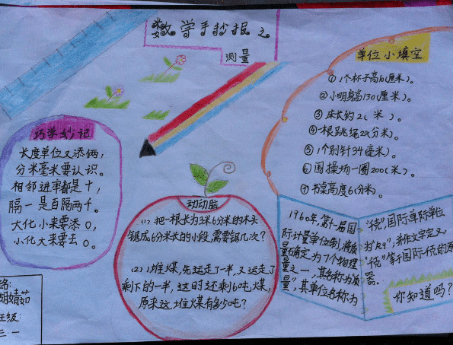 数学手抄报之
测量
单位小填空
①1个杯子高10(厘米)。
②小明身高130(厘米)。
③床长约2(米)。
④一根跳绳2(分米)。
⑤1个别针34(毫米)。
⑥围操场一圈200(米)。
⑦书桌高度6(分米)。
巧学妙记
长度单位又添俩,
分米毫米要认识。
相邻进率都是十,
隔一是百隔两千。
大化小来要添0,
小化大来要去0。
动动脑
(1)把一根长为3米6分米的木头
锯成6分米长的小段,需要锯几次?
(2)1堆煤,先运走了一半,又运走了
剩下的一半,这时还剩6吨煤,
原来这堆煤有多少吨?
1960年,第十一届国
际计量单位制,将质
量确定为7个物理
量之一,其名称为质
量",其单位名称为
你知道吗?
三一